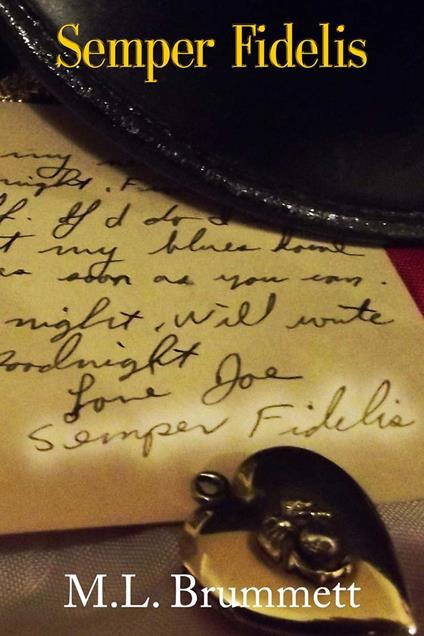 Semper Fidelis
my
night,
If I'd do
my blues home
as soon as you can.
night, Will write
Goodnight
Love Joe
Semper Fidelis
M.L. Brummett